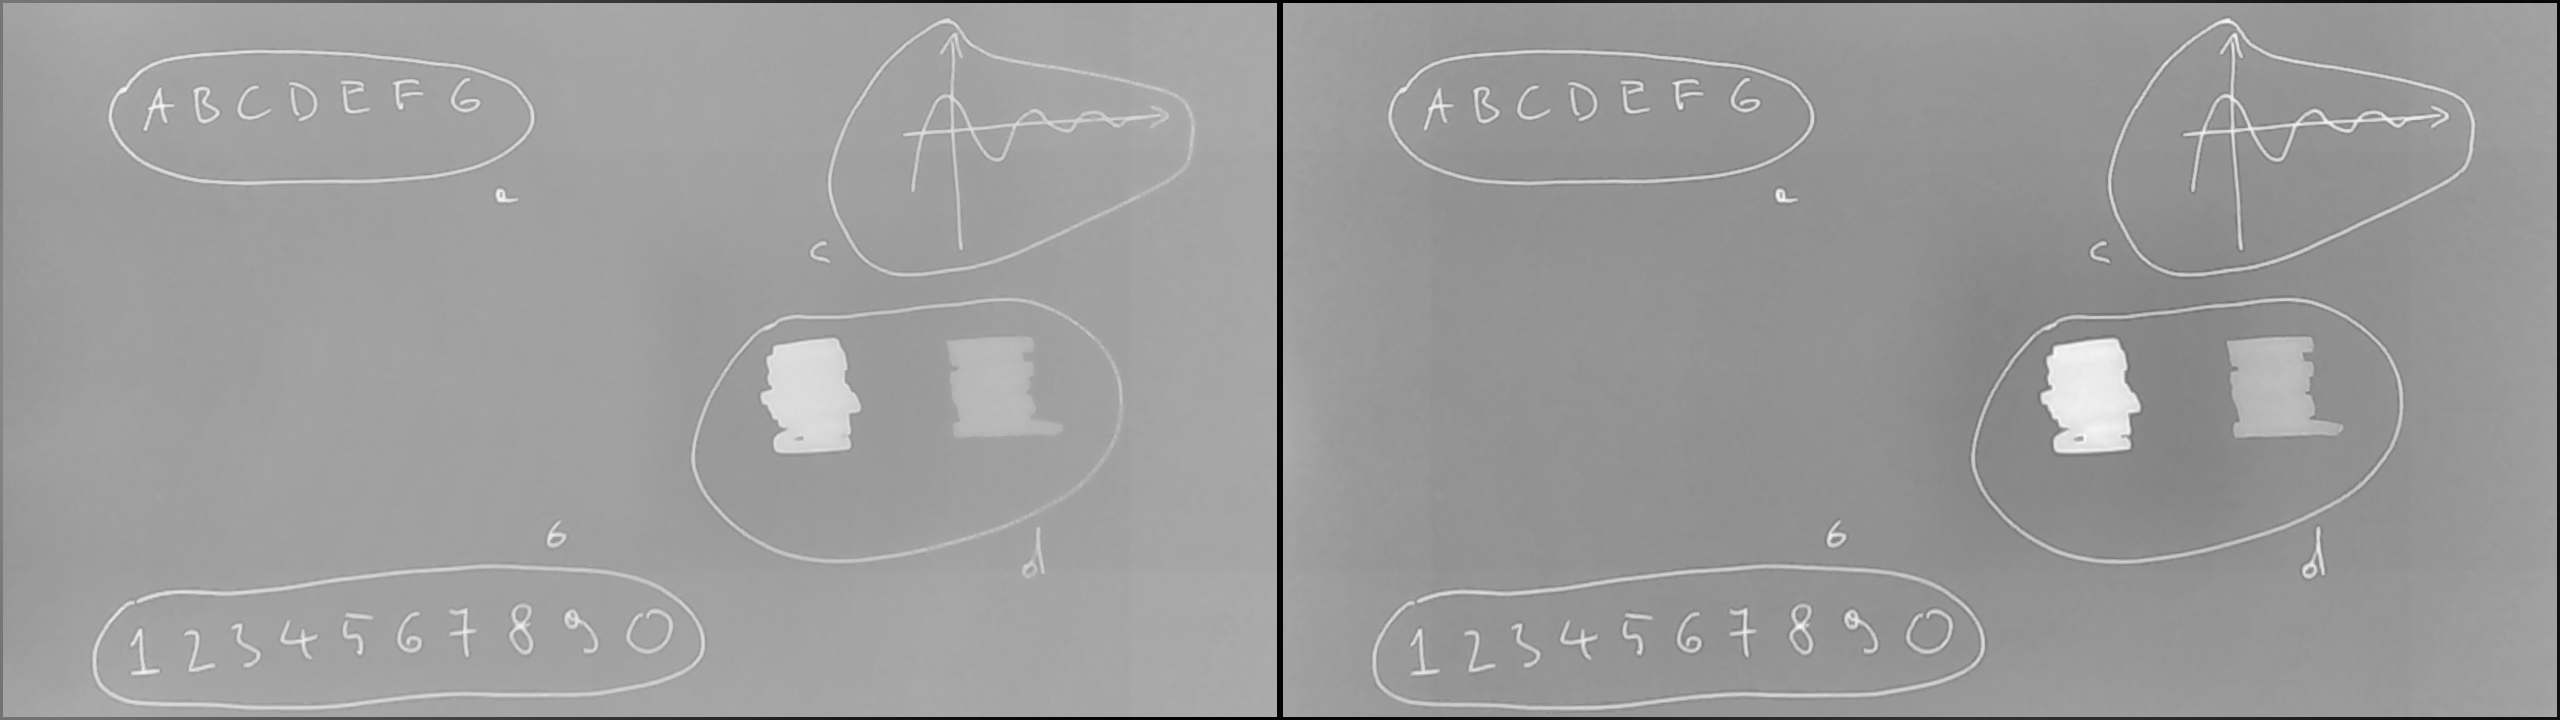 A B C D E F G
a
c
d
b
1 2 3 4 5 6 7 8 9 0
A B C D E F G
a
c
d
b
1 2 3 4 5 6 7 8 9 0